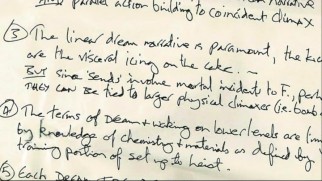 parallel action building to coincident climax
③ The linear dream narrative is paramount, the
are the visceral icing on the cake. –
BUT since 'sends' involve mortal incidents to F.,
THEY can be tied to larger physical climaxes (ie. bomb
④ The terms of Dream + waking on lower levels are
by knowledge of chemistry + materials as defined by
training portion of set up to heist.
⑤ Each Dream